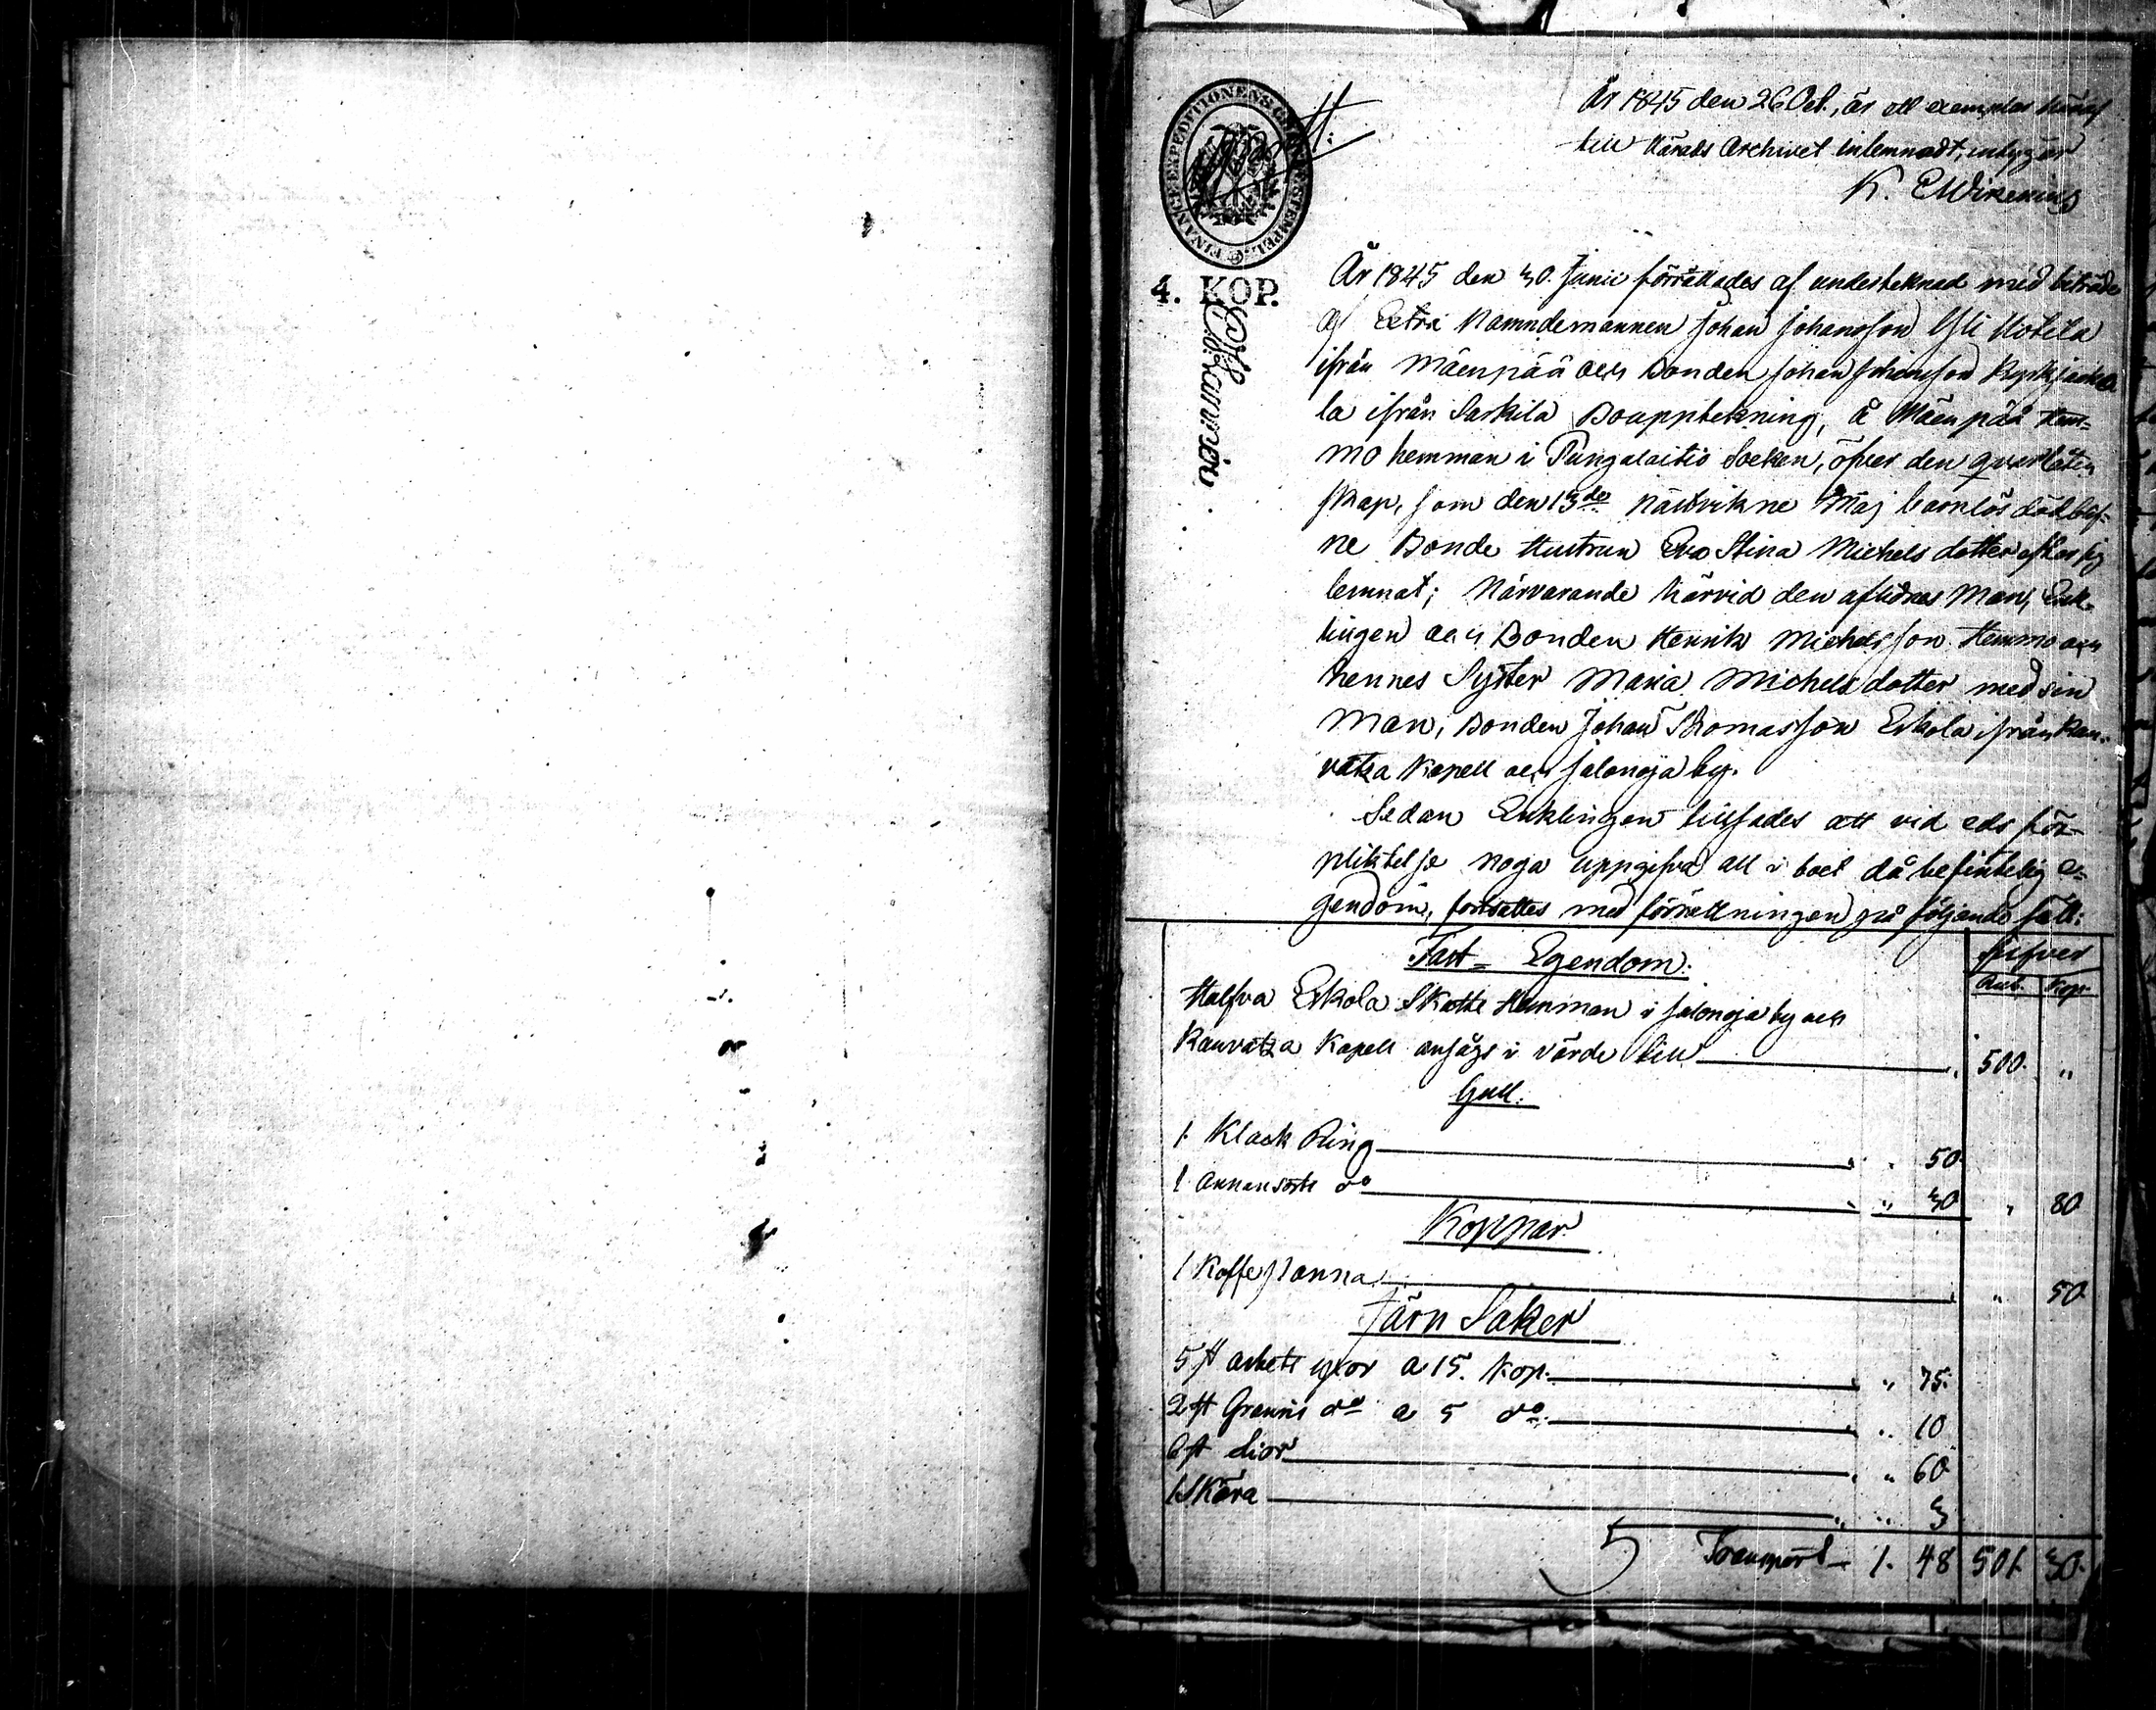 År 1845 den 26 Oct., är ett exemplar häraf
till Härads Archivet inlemnadt, intygar
K.
FINANCE EXPEDITIONENS STEMPEL
4. KOP.
År 1845 den 30. Junii förrättades af underteknad med biträde
af Extra Nämndemannen Johan Johansson Yli Kotila
ifrån Mäenpää och Bonden Johan Johansson
la ifrån Sarkila Bouppteckning, å Mäenpää Hem-
mo hemman i Pungalaitio Socken, öfver den qvarlåten
skap, som den 13de nästvikne Maj barnlös dödblef-
ne Bonde Hustrun Eva Stina Michels dotter efter sig
lemnat; Närvarande härvid den aflidnas Man, Enk-
lingen och Bonden Henrik Michelsson Hemmo och
hennes Syster Maria Michels dotter med sin
Man, Bonden Johan Thomasson Eskola ifrån Kau-
vatza Kapell och Jalonoja by.
Sedan Enklingen tillsades att vid eds för-
pliktelse noga uppgifva all i boet då befintelig e-
gendom, fortsattes med förrättningen på följande sätt:
Fast Egendom: Silfver
Rub. Kop
Halfva Eskola Skatte Hemman i Jalonoja by och
Kauvatza Kapell ansågs i värde till 500. "
Gull.
1. Klack Ring " " 50.
1 annan sort do " " 30 " 80
Koppar.
1 Koffe Panna " 50
Järn Saker
5 st arbets yxor a 15. Kop. " " 75.
2 st do a 5 do " " 10
6 st Lior " " 60
1 Skära " " 3
5 Transport 1. 48 501. 30.